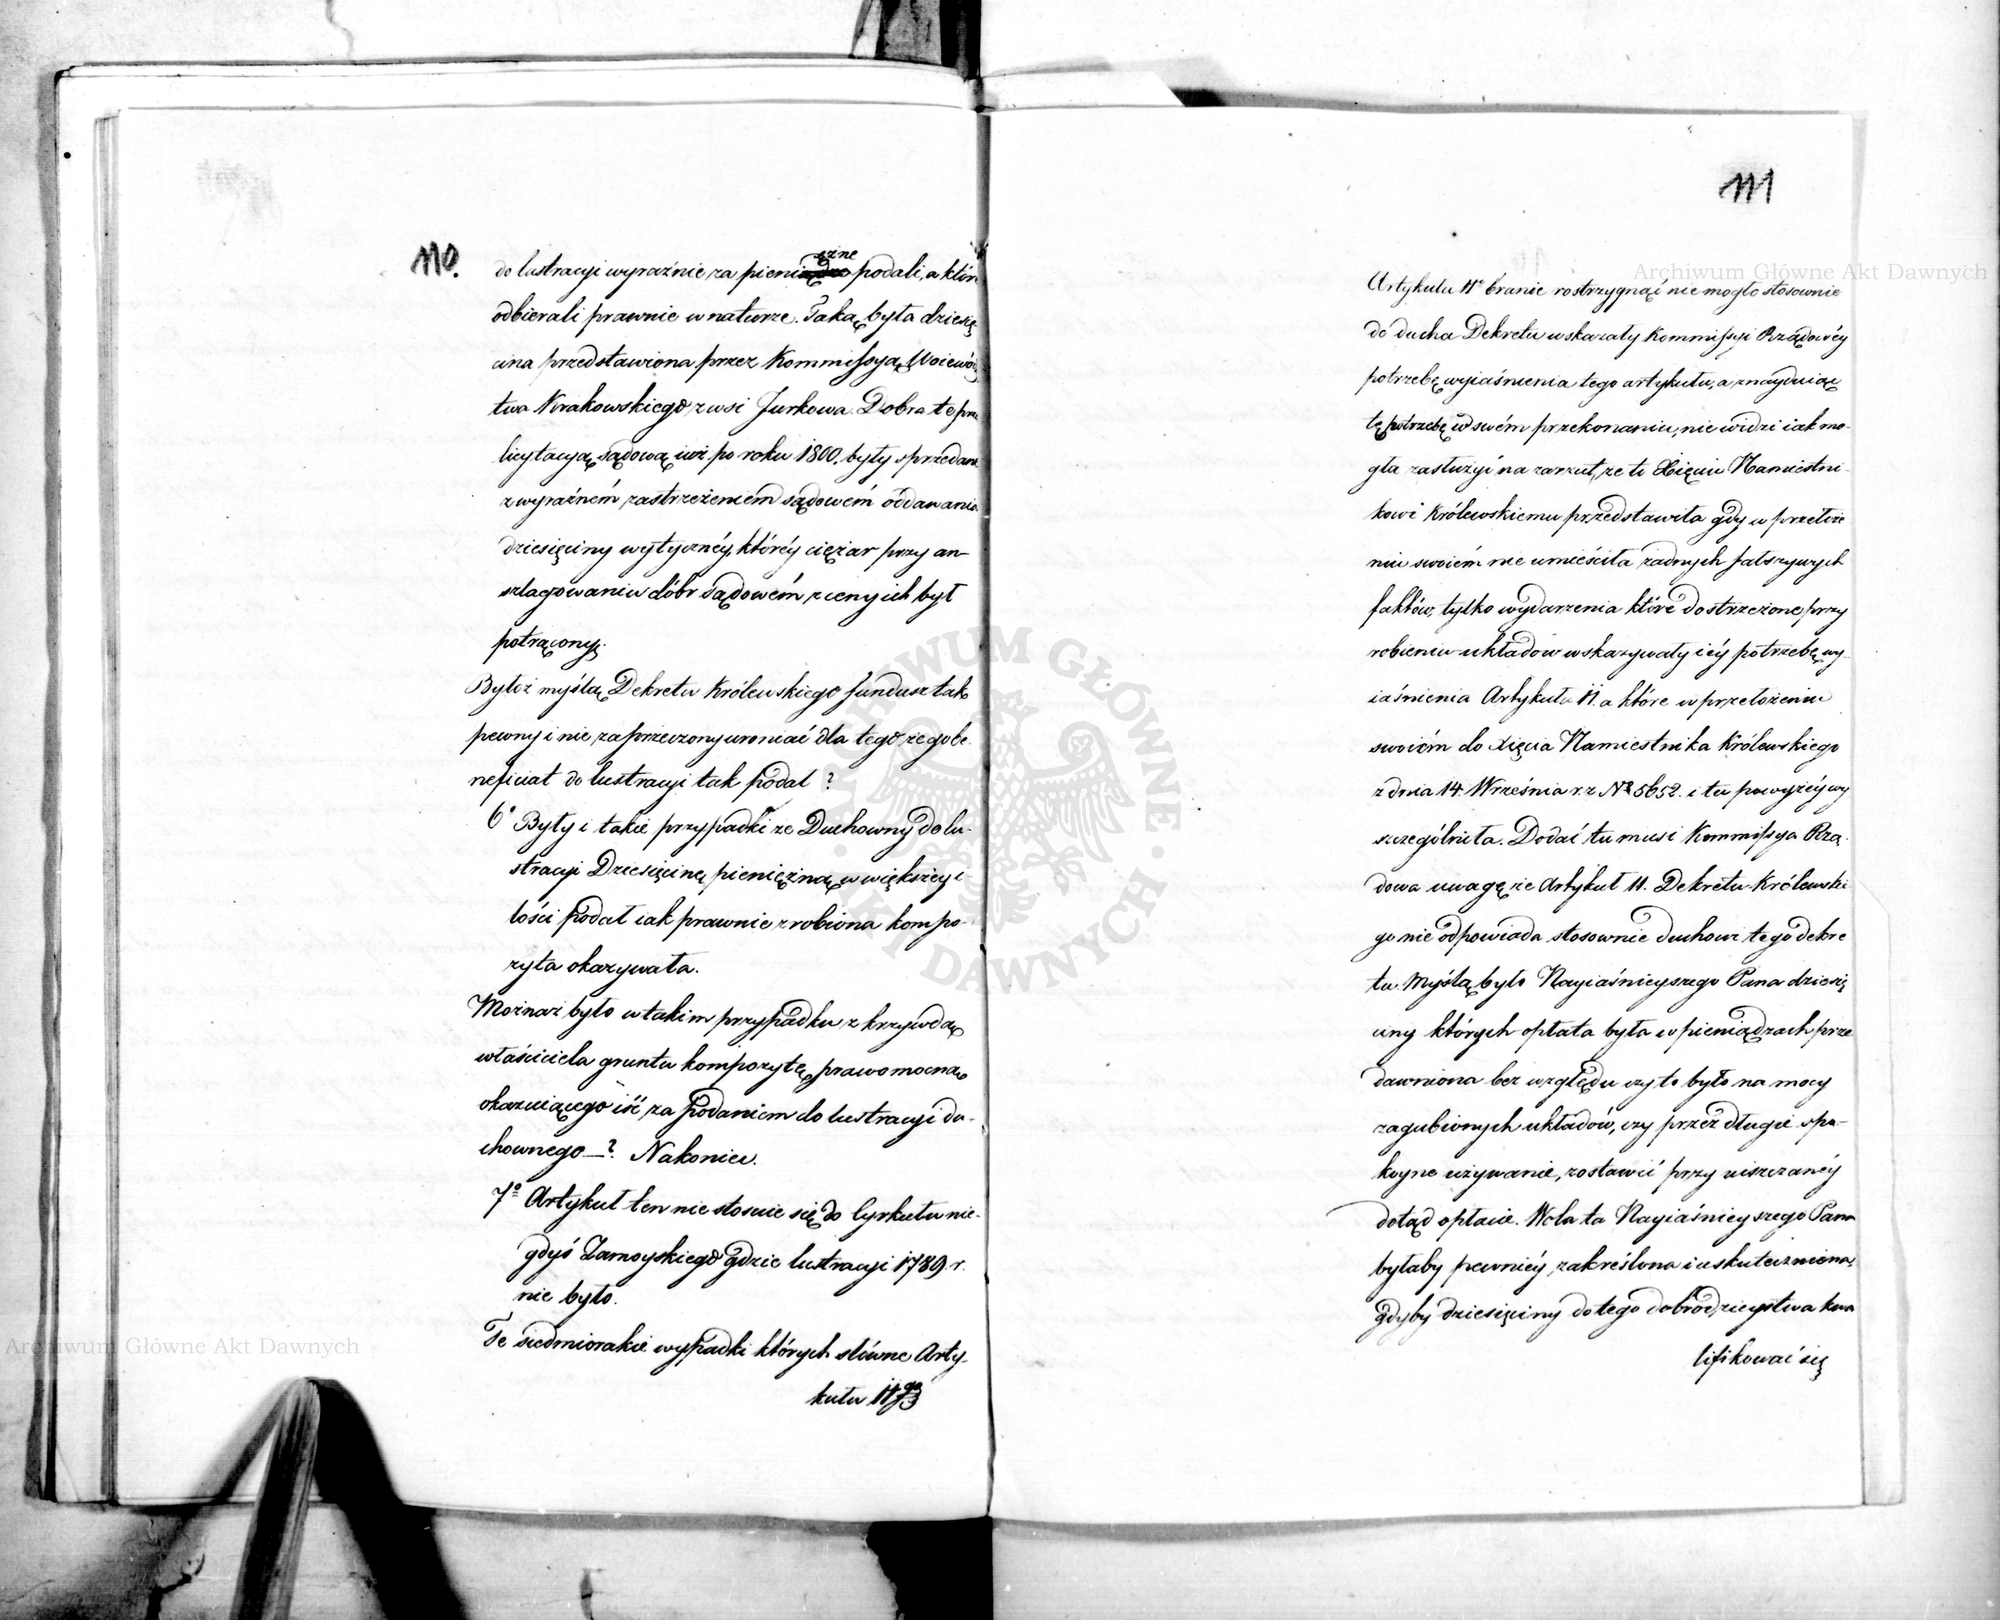 110.
do lustracyi wyraźnie za pieniężne podali, a które
odbierali prawnie w naturze. Taką była dziesię
cina przedstawiona przez Kommissyą Wojewódz
twa Krakowskiego z wsi Jurkowa. Dobra te przez
licytacyą sądową iuż po roku 1800. były sprzedane
z wyraźném zastrzeżeniem sądowém oddawania
dziesięciny wytycznéy, któréy ciężar przy an-
szlagowaniu dóbr sądowém z ceny ich był
potrącony.
Byłoż myślą Dekretu Królewskiego fundusz tak
pewny i nie zaprzeczony uroniać dla tego, że go be
neficiat do lustracyi tak podał?
6° Były i takie przypadki że Duchowny do lu-
stracyi Dziesięcinę pieniężną w większey i
lości podał iak prawnie zrobiona kompo-
zyta okazywała.
Możnaż było w takim przypadku z krzywdą
właściciela gruntu kompozytę prawomocną
okazuiącego iść za podaniem do lustracyi du-
chownego —? Nakoniec.
7° Artykuł ten nie stosuie się do Cyrkułu nie-
gdyś Zamoyskiego gdzie lustracyi 1789 r.
nie było.
Te siedmiorakie wypadki których słówne Arty-
kułu 11go
111
Artykułu 11° branie rostrzygnąć nie mogło stosownie
do ducha Dekretu wskazały Kommissyi Rządowéy
potrzebę wyiaśnienia tego artykułu, a znayduiąc
tę potrzebę w swém przekonaniu, nie widzi iak mo-
gła zasłużyć na zarzut, że to Xięciu Namiestni-
kowi Królewskiemu przedstawiła gdy w przełoże
niu swoiém nie umieściła żadnych fałszywych
faktów, tylko wydarzenia które dostrzeżone przy
robieniu układów wskazywały iéy potrzebę wy-
iaśnienia Artykułu 11. a które w przełożeniu
swoiém do Xięcia Namiestnika Królewskiego
z dnia 14. Września r. z. No 5652. i tu powyżéy wy
szczególniła. Dodać tu musi Kommissya Rzą-
dowa uwagę że Artykuł 11. Dekretu Królewskie
go nie odpowiada stosownie duchowi tego dekre
tu. Myślą było Nayiaśnieyszego Pana dziesię
ciny których opłata była w pieniądzach prze
dawniona bez względu czy to było na mocy
zagubionych układów, czy przez długie spo-
koyne używanie, zostawić przy uiszczanéy
dotąd opłacie. Wola ta Nayiaśnieyszego Pana
byłaby pewniéy zakreślona i uskuteczniona,
gdyby dziesięciny do tego dobrodzieystwa kwa
lifikować się
Archiwum Główne Akt Dawnych
Archiwum Główne Akt Dawnych
ARCHIWUM GŁÓWNE AKT DAWNYCH